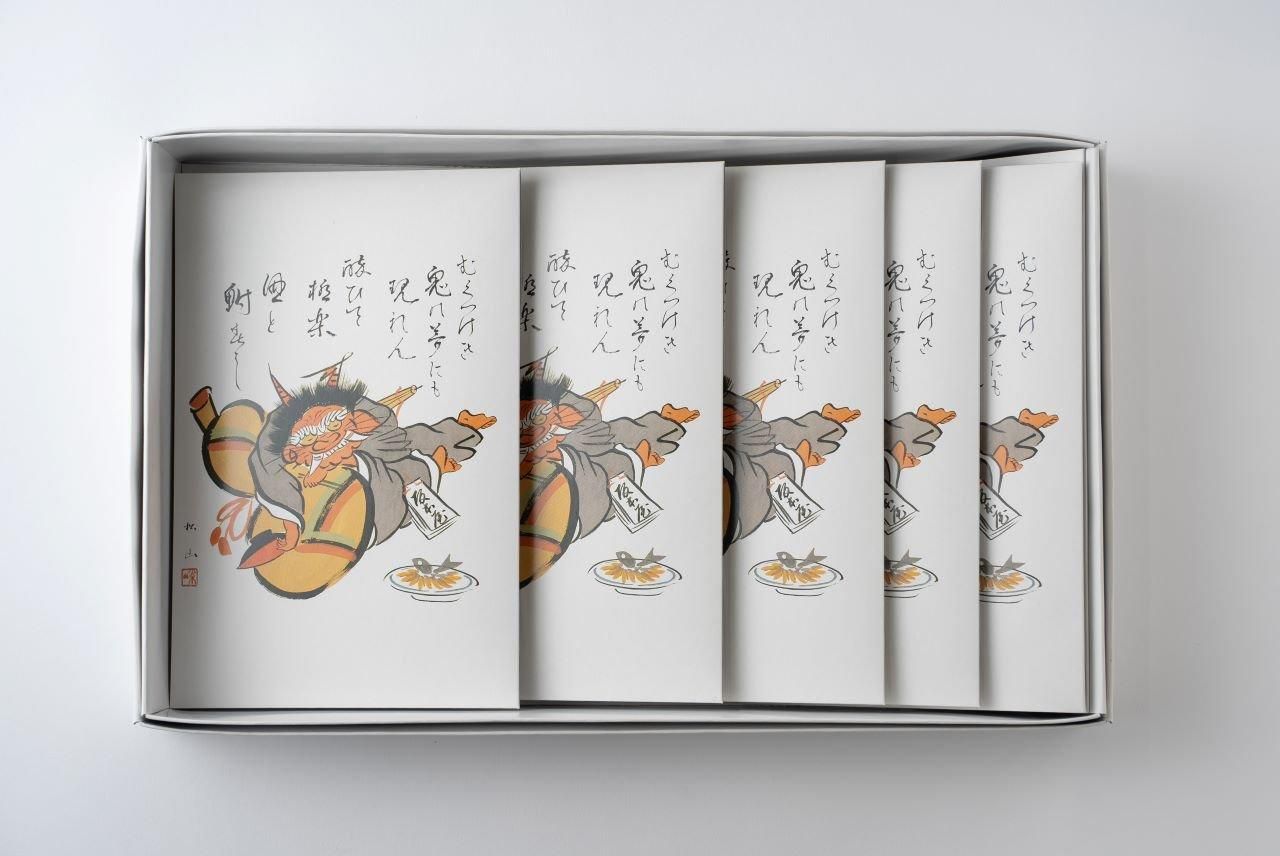 むくつけき
鬼の夢にも
現れん
酔ひて
極楽
酒と
鮒寿し
坂本屋
松山
むくつけき
鬼の夢にも
現れん
酔ひて
極楽
坂本屋
むくつけき
鬼の夢にも
現れん
坂本屋
むくつけき
鬼の夢にも
坂本屋
むくつけき
鬼の夢にも
坂本屋